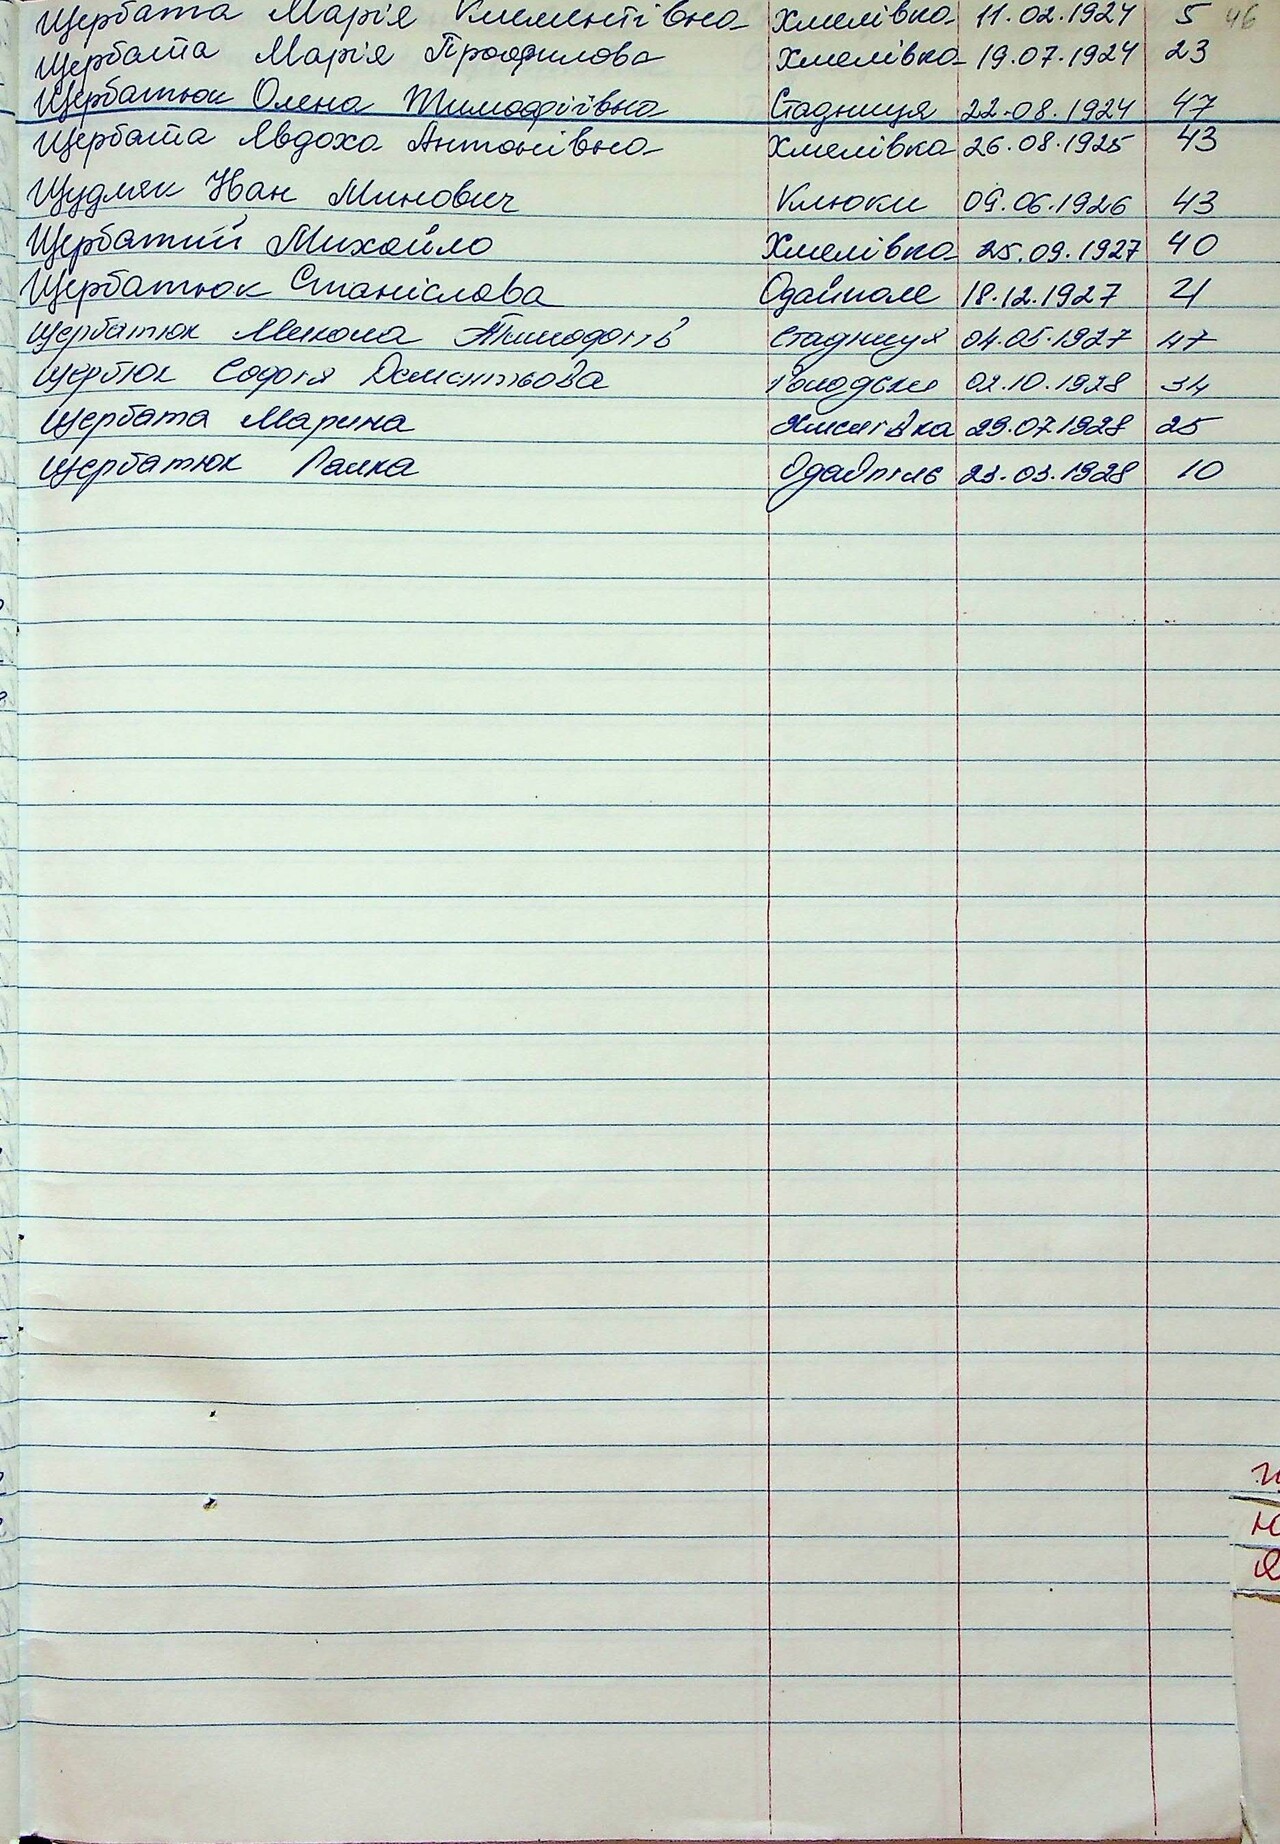 Щербата Марія Климентівна Хмелівка 11.02.1924 5 46
Щербата Марія Профилова Хмелівка 19.07.1924 23
Щербатюк Олена Тимофіївна Стадниця 22.08.1924 47
Щербата Явдоха Антонівна Хмелівка 26.08.1925 43
Щудляк Іван Минович Клюки 09.06.1926 43
Щербатий Михайло Хмелівка 25.09.1927 40
Щербатюк Станіслава Одайполе 18.12.1927 21
Щербатюк Микола Стадниця 04.05.1927 47
Щербюк Софія 02.10.1928 34
Щербата Марина Хмелівка 29.07.1928 25
Щербатюк Ганка Одайполе 23.03.1928 10
Ю
Я